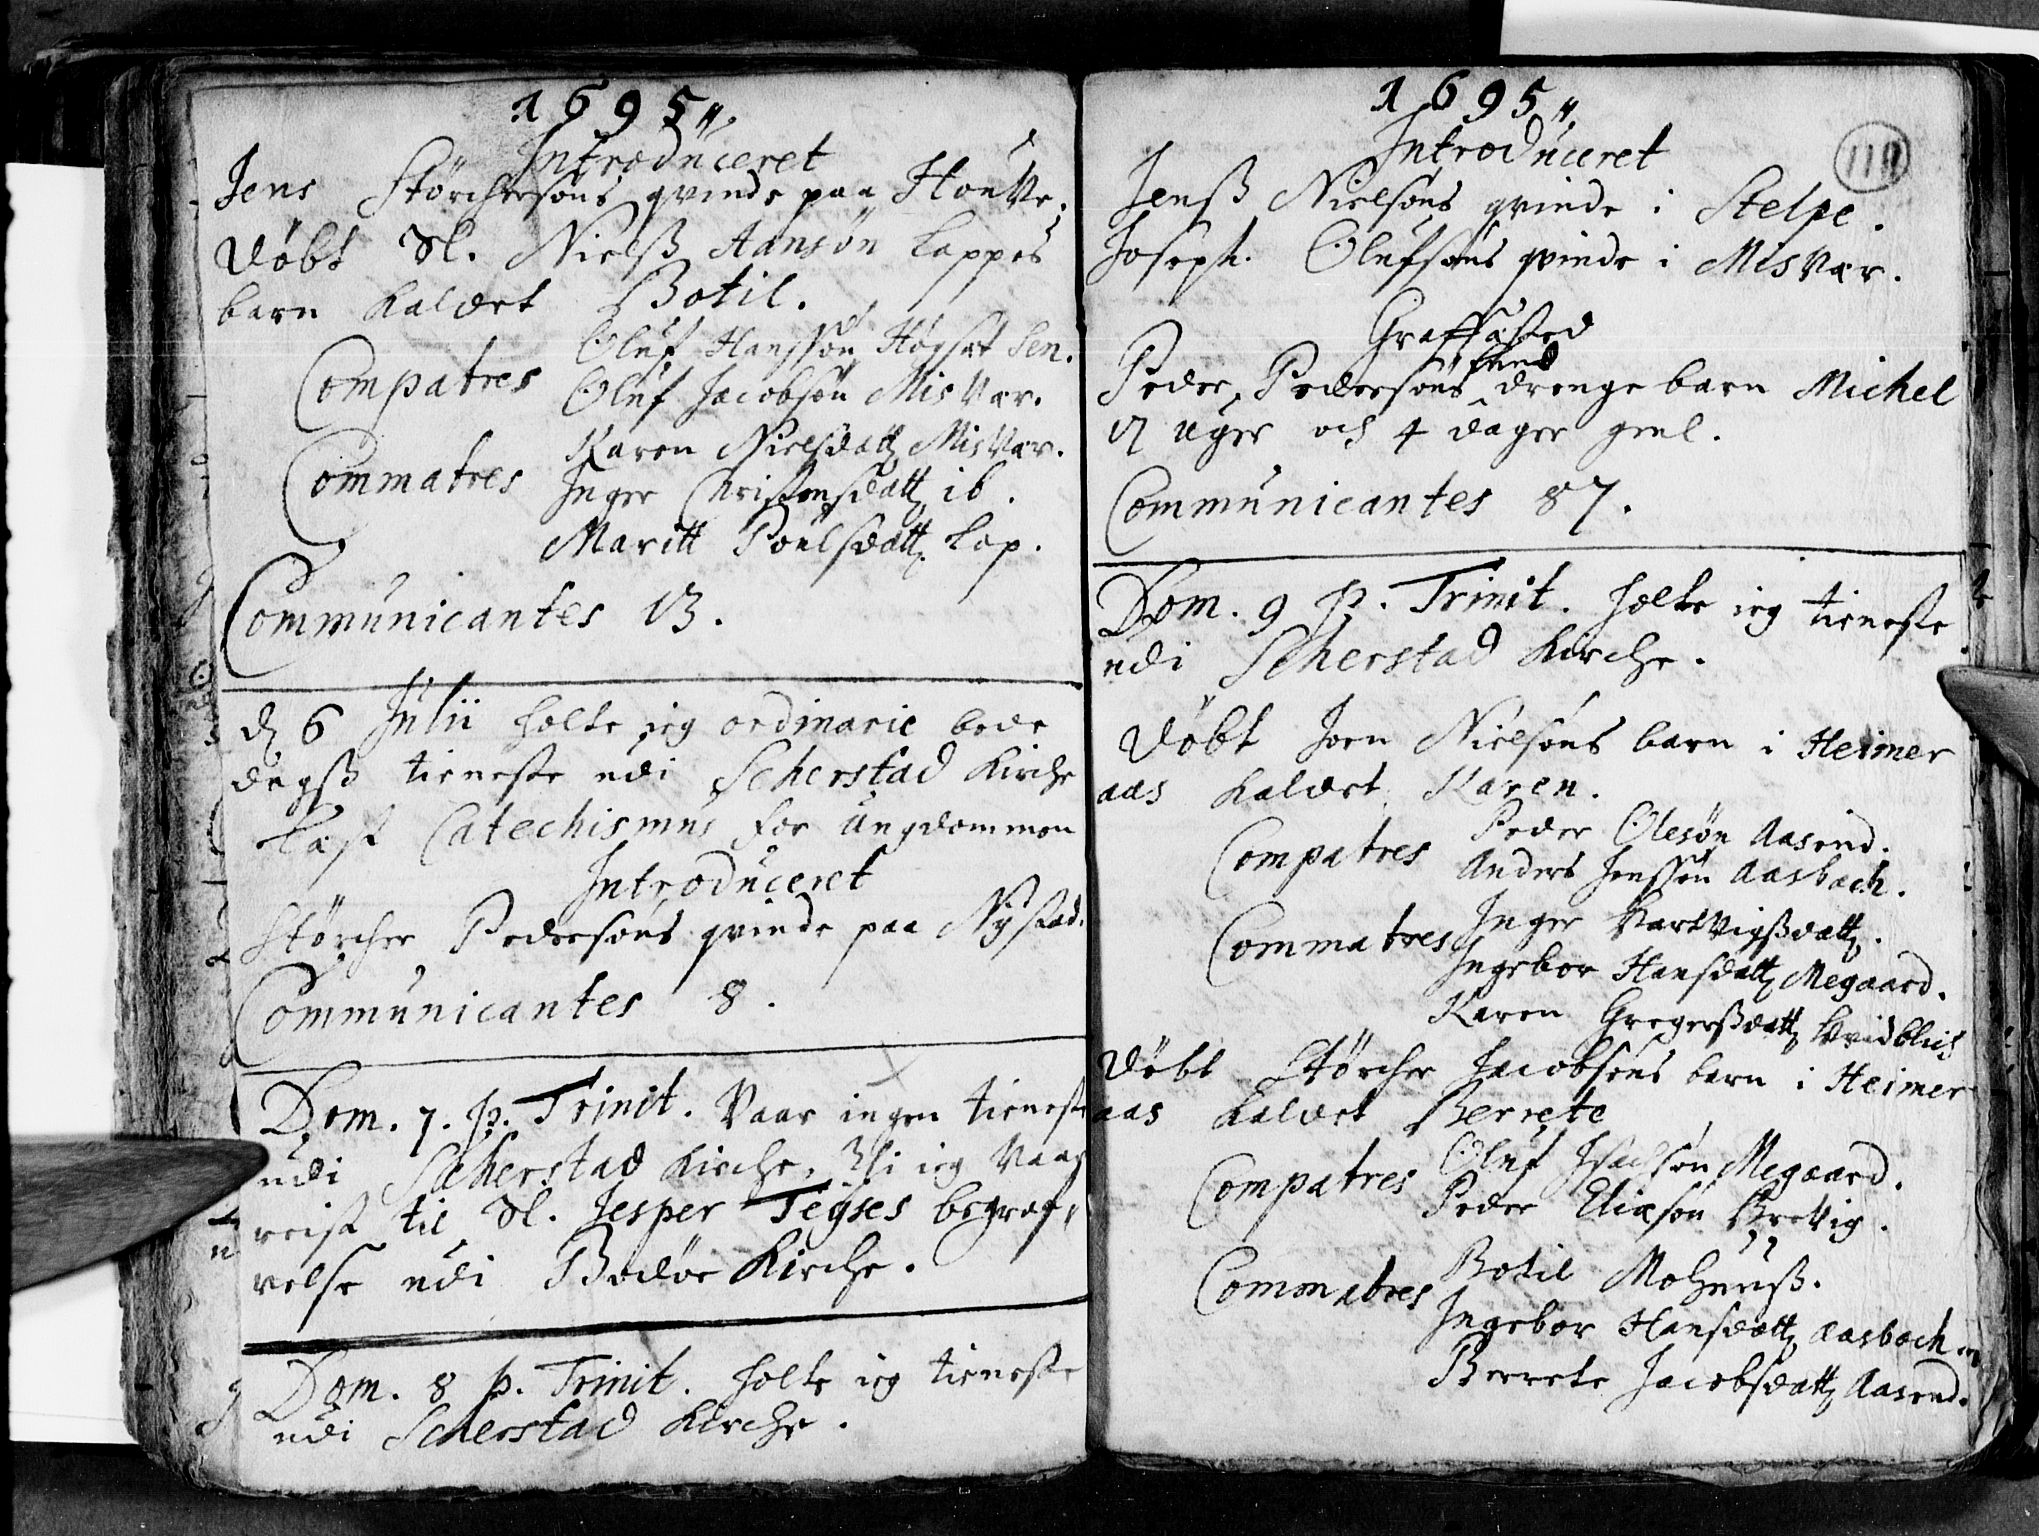 1695
Introduceret
Jens Størchersøns qvinde paa Houve.
Døbt Sl. Nielß Aansøn Lappes
barn kaldet Botil.
Compatres Oluf Hansøn Høyset Sen.
Oluf Jacobsøn Misvær.
Karen Nielsdatt Misvær.
Commatres Inger Christensdatt ib.
Maritt Poulsdatt Lap.
Communicantes 13.
d 6 Julii holte jeg ordinarie bede
dagß tieneste udi Scherstad Kirche
Læst Catechismus for Ungdommen
Introduceret
Størcher Pedersøns qvinde paa Nystad.
Communicantes 8.
Dom. 7. p. Trinit. Vaar ingen tieneste
udi Scherstad Kirche, Thi ieg Vaar
reist til Sl. Jesper Teyses begraf
velse udi Bodøe Kirche.
Dom. 8 p. Trinit. holte ieg tieneste
udi Scherstad Kirche.
1695
110
Introduceret
Jenß Nielsøns qvinde i Stelpe.
Joseph Olufsøns qvinde i Misvær.
Graffästed
Peder Pedersøns drenge barn Michel
17 uger och 4 dager gml.
Communicantes 87.
Dom. 9 p. Trinit. holte ieg tieneste
udi Scherstad Kirche.
Døbt Joen Nielsøns barn i Heimer
aas kaldet Karen.
Peder Olesøn Aasend.
Compatres Anders Jenssøn Aasbach.
Commatres Inger Hartvigßdatt.
Ingebor Hansdatt Megaard.
Karen Gregerßdatt Hvidblich
Døbt Størcher Jacobsøns barn i Heimer
aas kaldet Berrete
Compatres Oluf Isachsøn Megaard.
Peder Eliæsøn Brevig.
Commatres Botil Mognuß.
Ingebor Hansdatt Aasbach
Berrete Jacobsdatt Aasend.